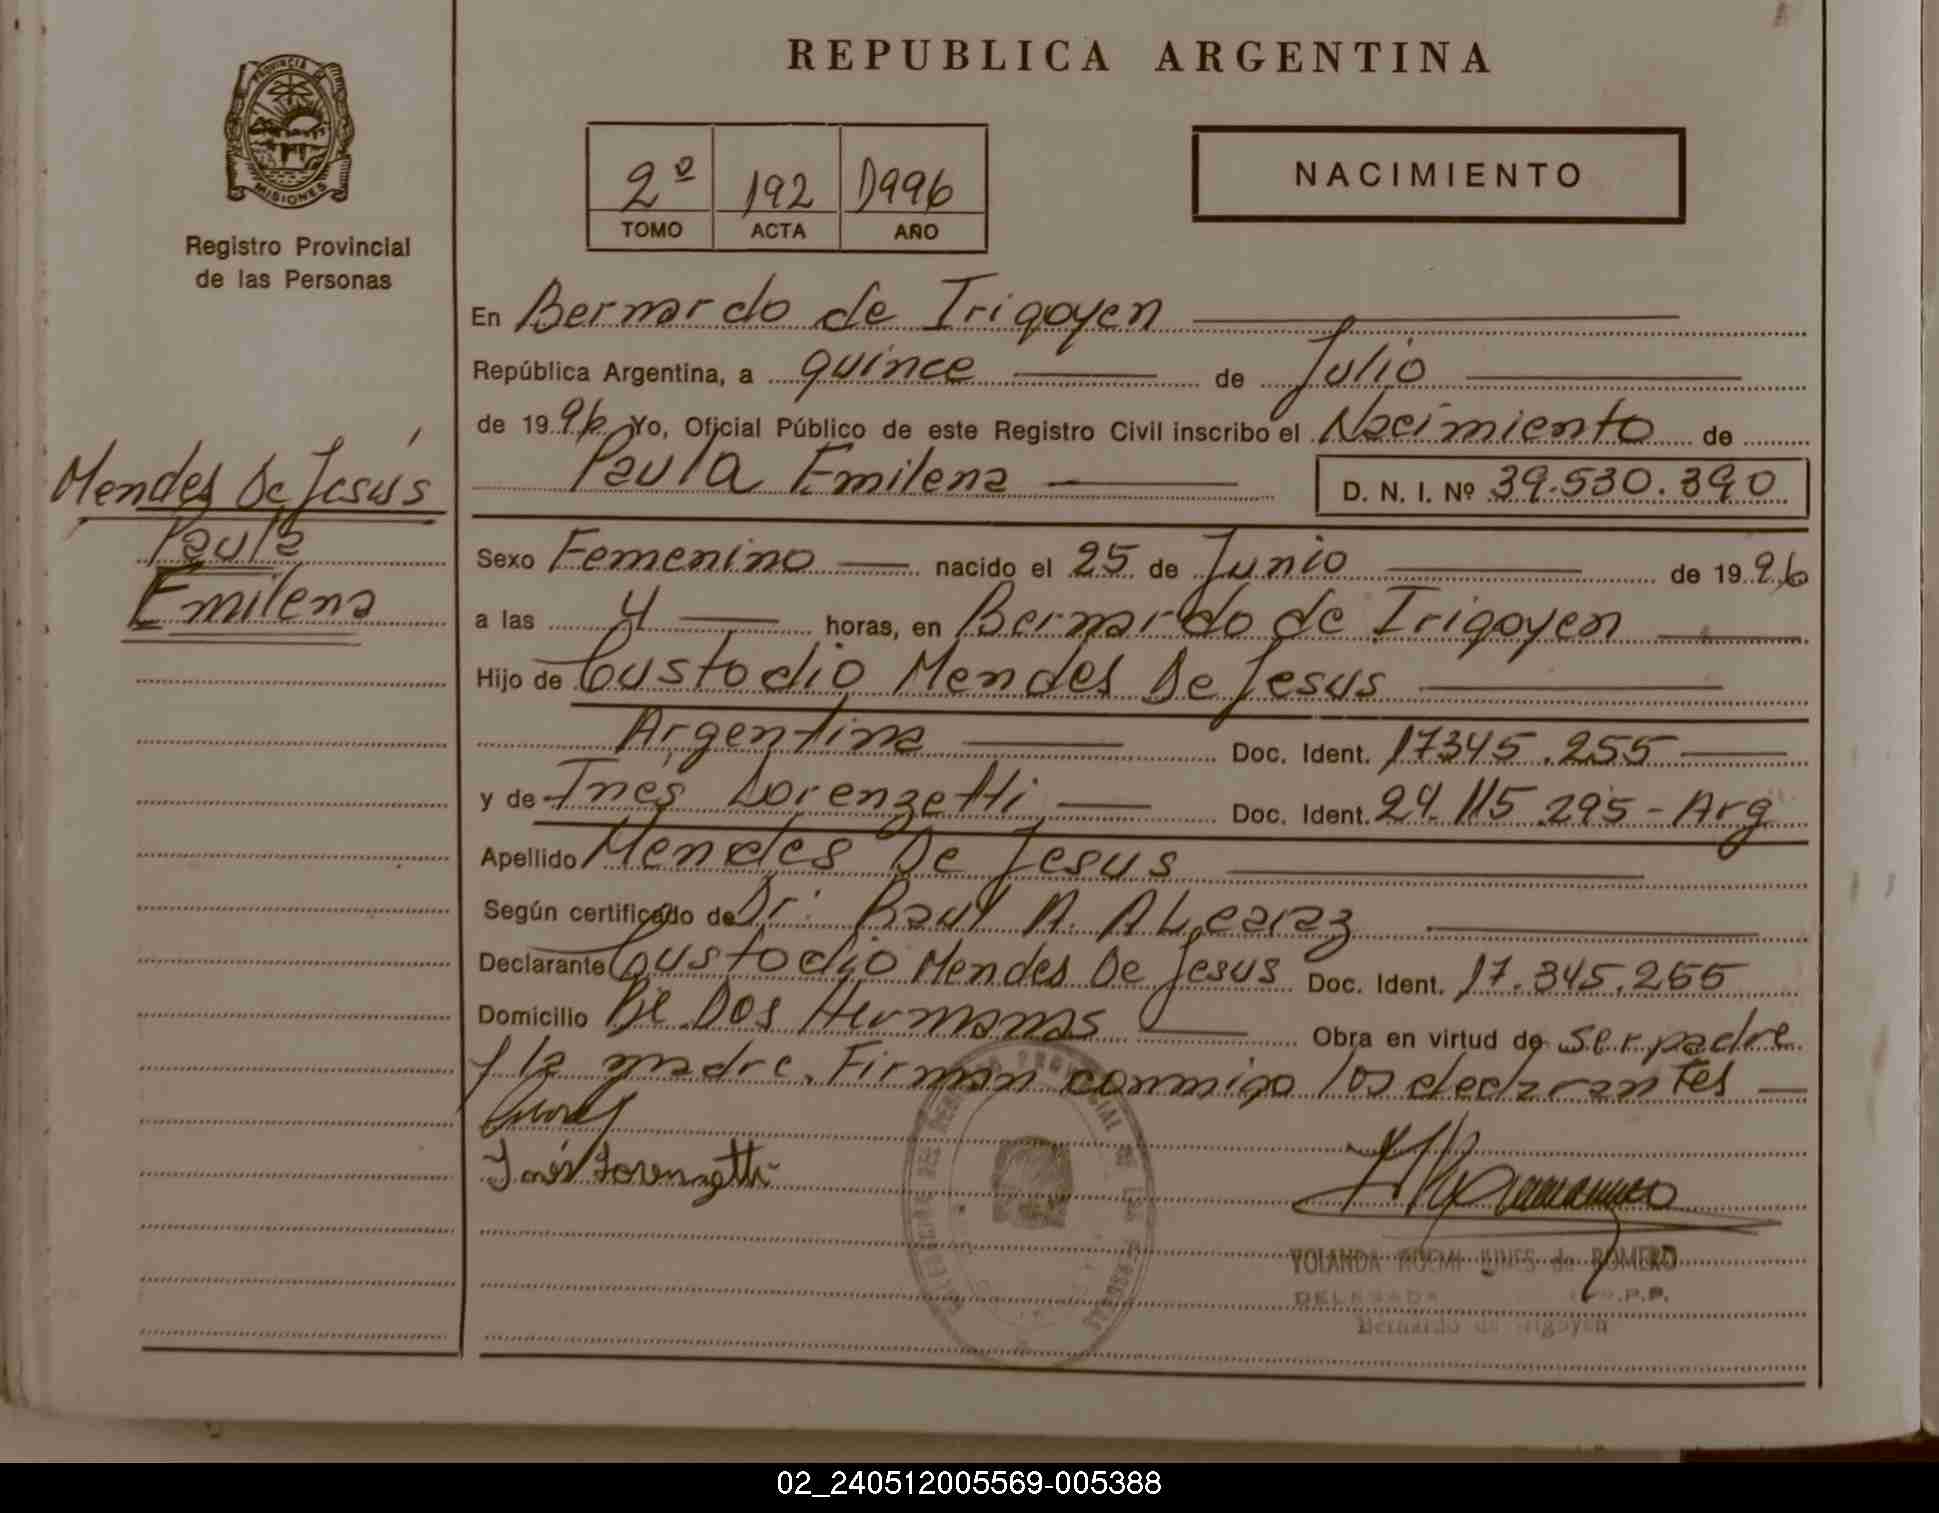 REPUBLICA ARGENTINA
PROVINCIA
MISIONES
Registro Provincial
de las Personas
2º 192 1996
TOMO ACTA AÑO
NACIMIENTO
En Bernardo de Irigoyen
República Argentina, a quince de Julio
de 1996 Yo, Oficial Público de este Registro Civil inscribo el Nacimiento de
Paula Emilena D. N. I. Nº 39.530.390
Mendes De Jesús
Paula
Emilena
Sexo Femenino nacido el 25 de Junio de 1996
a las 4 horas, en Bernardo de Irigoyen
Hijo de Custodio Mendes De Jesus
Argentina Doc. Ident. 17345.255
y de Inés Lorenzetti Doc. Ident. 24.115.295 - Arg
Apellido Mendes De Jesus
Según certificado de Dr: Raul A. ALcaraz
Declarante Custodio Mendes De Jesus Doc. Ident. 17.345.255
Domicilio Pje Dos Hermanas Obra en virtud de ser padre
y la madre. Firman conmigo los declarantes
Inés Lorenzetti
YOLANDA NOEMI de ROMERO
DELEGADA R.P.P.
Bernardo de Irigoyen
02_240512005569-005388